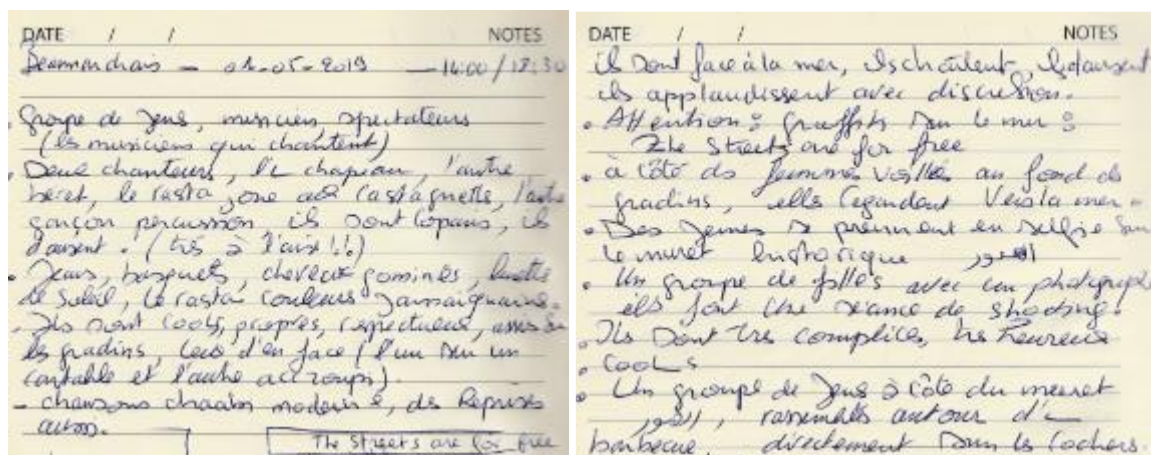 DATE / / NOTES
01-05-2019 — 14:00 / 18:30
. Groupe de jeus, musiciens spectateurs
(les musiciens qui chantent)
. Deux chanteurs, l'1 chapeau, l'autre
beret, le rasta joue aux castagnettes, l'autre
garçon percussion, ils sont copains, ils
dansent. (très à l'aise !!)
. Jeans, basquets, cheveux gominés, lunette
de soleil, le rasta couleurs Jamaiquaine.
. Ils sont cools, propres, respectueux, assis sur
les gradins, ceux d'en face (l'un sur un
cartable et l'autre accroupi).
- chansons chaabi modernisé, des Reprises
The streets are for free
DATE / / NOTES
ils sont face à la mer, ils chantent, ils dansent
ils applaudissent avec discretion.
. Attention : graffiti sur le mur :
The streets are for free
. à côté des femmes voilées au fond des
gradins, elles regardent vers la mer.
. Des jeunes se prennent en selfie sur
le muret historique السور
. Un groupe de filles avec un photographe
elles font une séance de shooting.
. Ils sont très complices, très heureux
. COOLS
. Un groupe de jeus à côté du meuret
السور, rassemblés autour d'1
barbecue, directement sur les rochers.